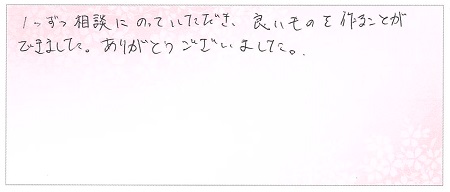 1つずつ相談にのっていただき、良いものを作ることが
できました。ありがとうございました。